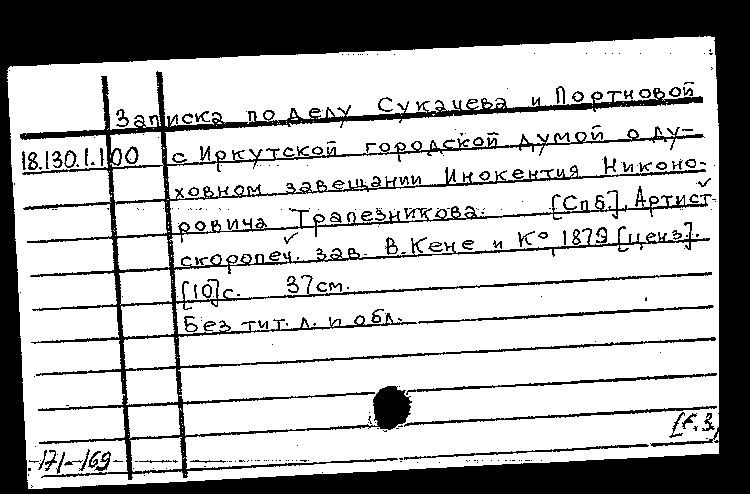 Записка по делу Сукачева и Портновой
18.130.1.100 с Иркутской городской думой о ду-
ховном завещании Инокентия Никоно-
ровича Трапезникова. [Спб], Артист
скоропеч. зав. В. Кене и К°, 1879 [ценз].
[10]с. 37см.
Без тит. л. и обл.
171-169